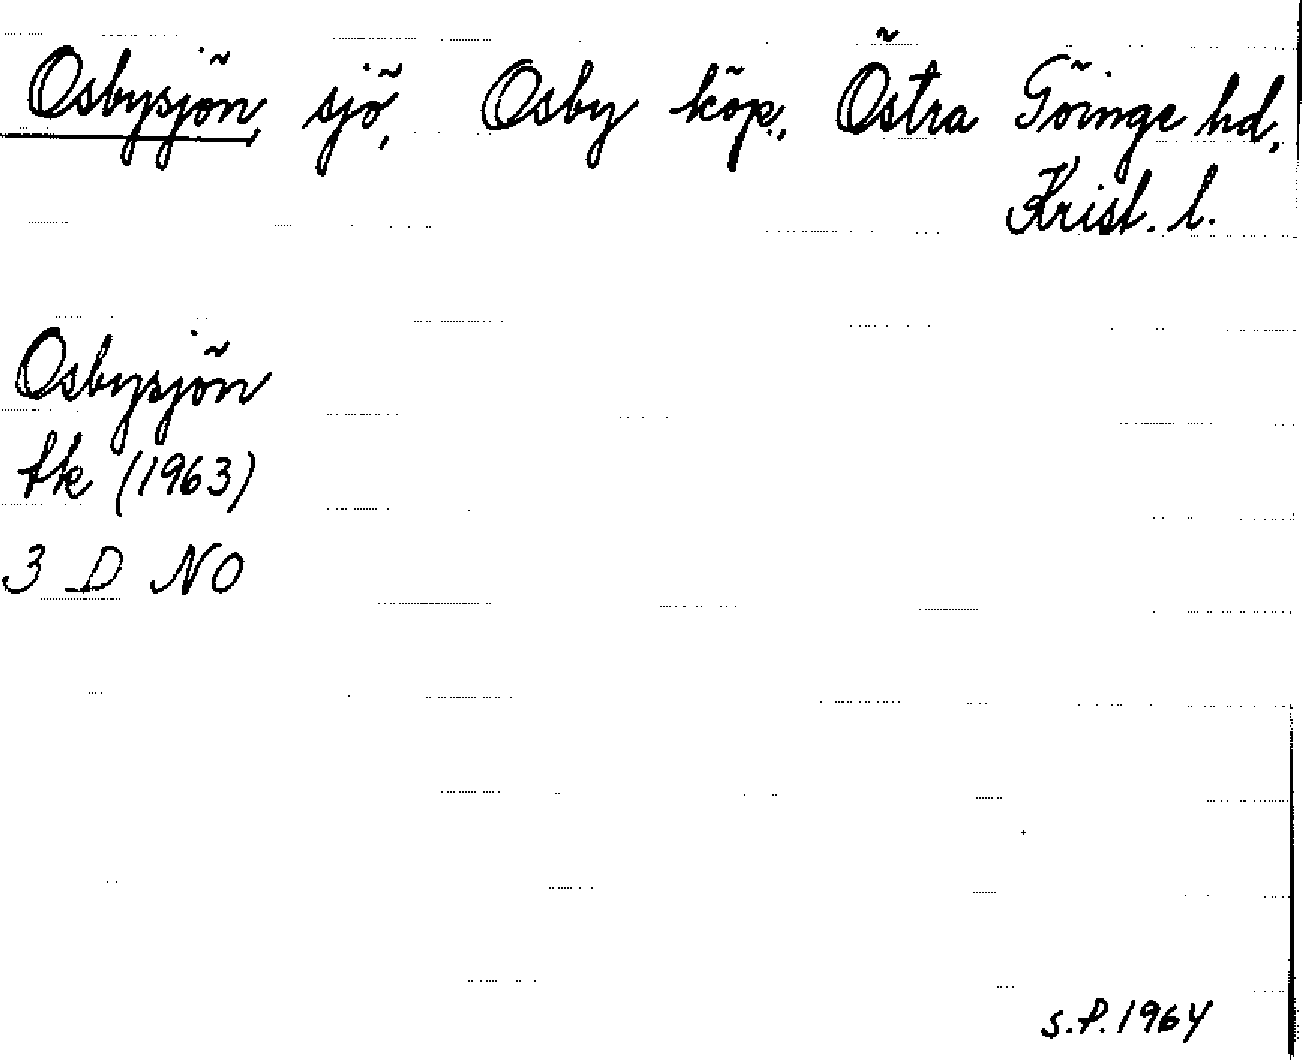 Osbysjön, sjö, Osby köp., Östra Göinge hd,
Krist. l.
Osbysjön
tk (1963)
3 D NO
s.f. 1964